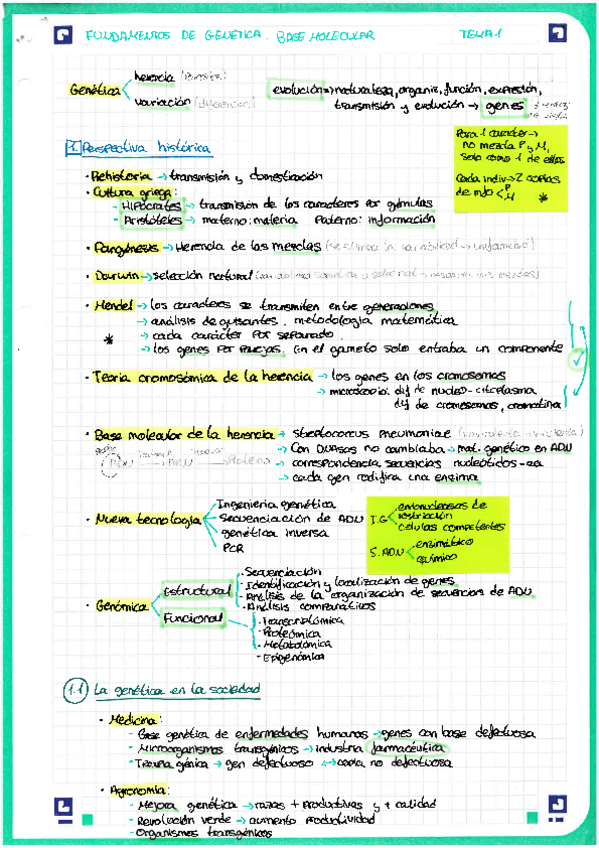 FUNDAMENTOS DE GENÉTICA. BASE MOLECULAR TEMA 1
Genética
herencia (parecer)
variación (diferencia)
evolución→naturaleza, organiz, función, expresión,
transmisión y evolución → genes
Para 1 carácter→
no mezcla P y M,
solo como 1 de ellos
Cada indiv→2 copias
de info < P M *
1. Perspectiva histórica
· Prehistoria → transmisión y domesticación
· Cultura griega:
- Hipócrates → transmisión de los caracteres por gémulas
- Aristóteles → materno: materia Paterno: información
· Pangénesis → Herencia de las mezclas
· Darwin → selección natural
· Mendel → los caracteres se transmiten entre generaciones
→ análisis de guisantes. metodología matemática
* → cada carácter por separado
→ los genes por parejas. En el gameto solo entraba un componente
· Teoría cromosómica de la herencia → los genes en los cromosomas
→ microscopio: dif de nucleo-citoplasma
dif de cromosomas, cromatina
· Base molecular de la herencia → Streptococcus pneumoniae
→ Con DNasas no cambiaba → mat. genético en ADN
→ correspondencia secuencias nucleótidos-aa
→ cada gen codifica una enzima
ADN ARN Proteína
· Nueva tecnología
Ingeniería genética
Secuenciación de ADN
genética inversa
PCR
I.G
endonucleasas de
restricción
células competentes
S. ADN
enzimático
químico
· Genómica
Estructural
· Secuenciación
· Identificación y localización de genes
· Análisis de la organización de secuencias de ADN
· Análisis comparativos
Funcional
· Transcriptómica
· Proteómica
· Metabolómica
· Epigenómica
1.1 La genética en la sociedad
· Medicina:
- Base genética de enfermedades humanas → genes con base defectuosa
- Microorganismos transgénicos → industria farmacéutica
- Terapia génica → gen defectuoso ↔ copia no defectuosa
· Agronomía:
- Mejora genética → razas + productivas y + calidad
- Revolución verde → aumento productividad
- Organismos transgénicos